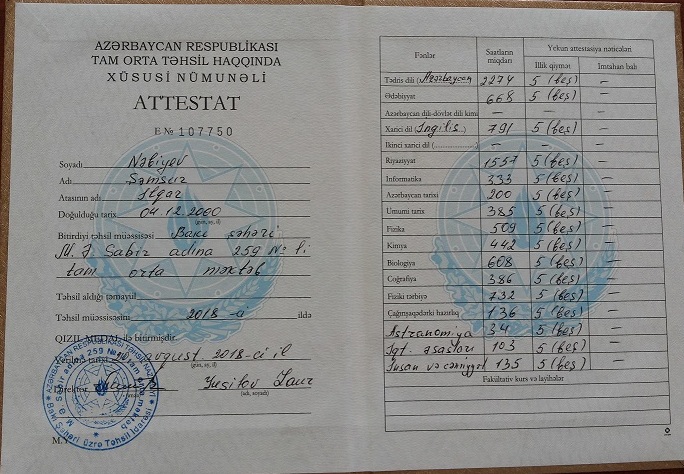 AZƏRBAYCAN RESPUBLİKASI
TAM ORTA TƏHSİL HAQQINDA
XÜSUSİ NÜMUNƏLİ
ATTESTAT
E № 107750
Soyadı Nəbiyev
Adı Şəmsur
Atasının adı İlqar
Doğulduğu tarix 04.12.2000
(gün, ay, il)
Bitirdiyi təhsil müəssisəsi Bakı şəhəri
M.Ə. Sabir adına 259 №-li
tam orta məktəb
Təhsil aldığı təmayül
Təhsil müəssisəsini 2018-ci ildə
QIZIL MEDAL ilə bitirmişdir.
Verilmə tarixi avqust 2018-ci il
(gün, ay, il)
Direktor Yusifov
(imza) (adı, soyadı)
M.Y.
Fənlər Saatların miqdarı Yekun attestasiya nəticələri
İllik qiymət İmtahan balı
Tədris dili (Azərbaycan) 2274 5 (beş) —
Ədəbiyyat 668 5 (beş) —
Azərbaycan dili-dövlət dili kimi — — —
Xarici dil (İngilis) 791 5 (beş) —
İkinci xarici dil (..................) — — —
Riyaziyyat 1557 5 (beş) —
İnformatika 333 5 (beş) —
Azərbaycan tarixi 200 5 (beş) —
Ümumi tarix 385 5 (beş) —
Fizika 509 5 (beş) —
Kimya 442 5 (beş) —
Biologiya 608 5 (beş) —
Coğrafiya 386 5 (beş) —
Fiziki tərbiyə 732 5 (beş) —
Çağırışaqədərki hazırlıq 136 5 (beş) —
Astronomiya 34 5 (beş) —
İqt. əsasları 103 5 (beş) —
İnsan və cəmiyyət 135 5 (beş) —
Fakültativ kurs və layihələr